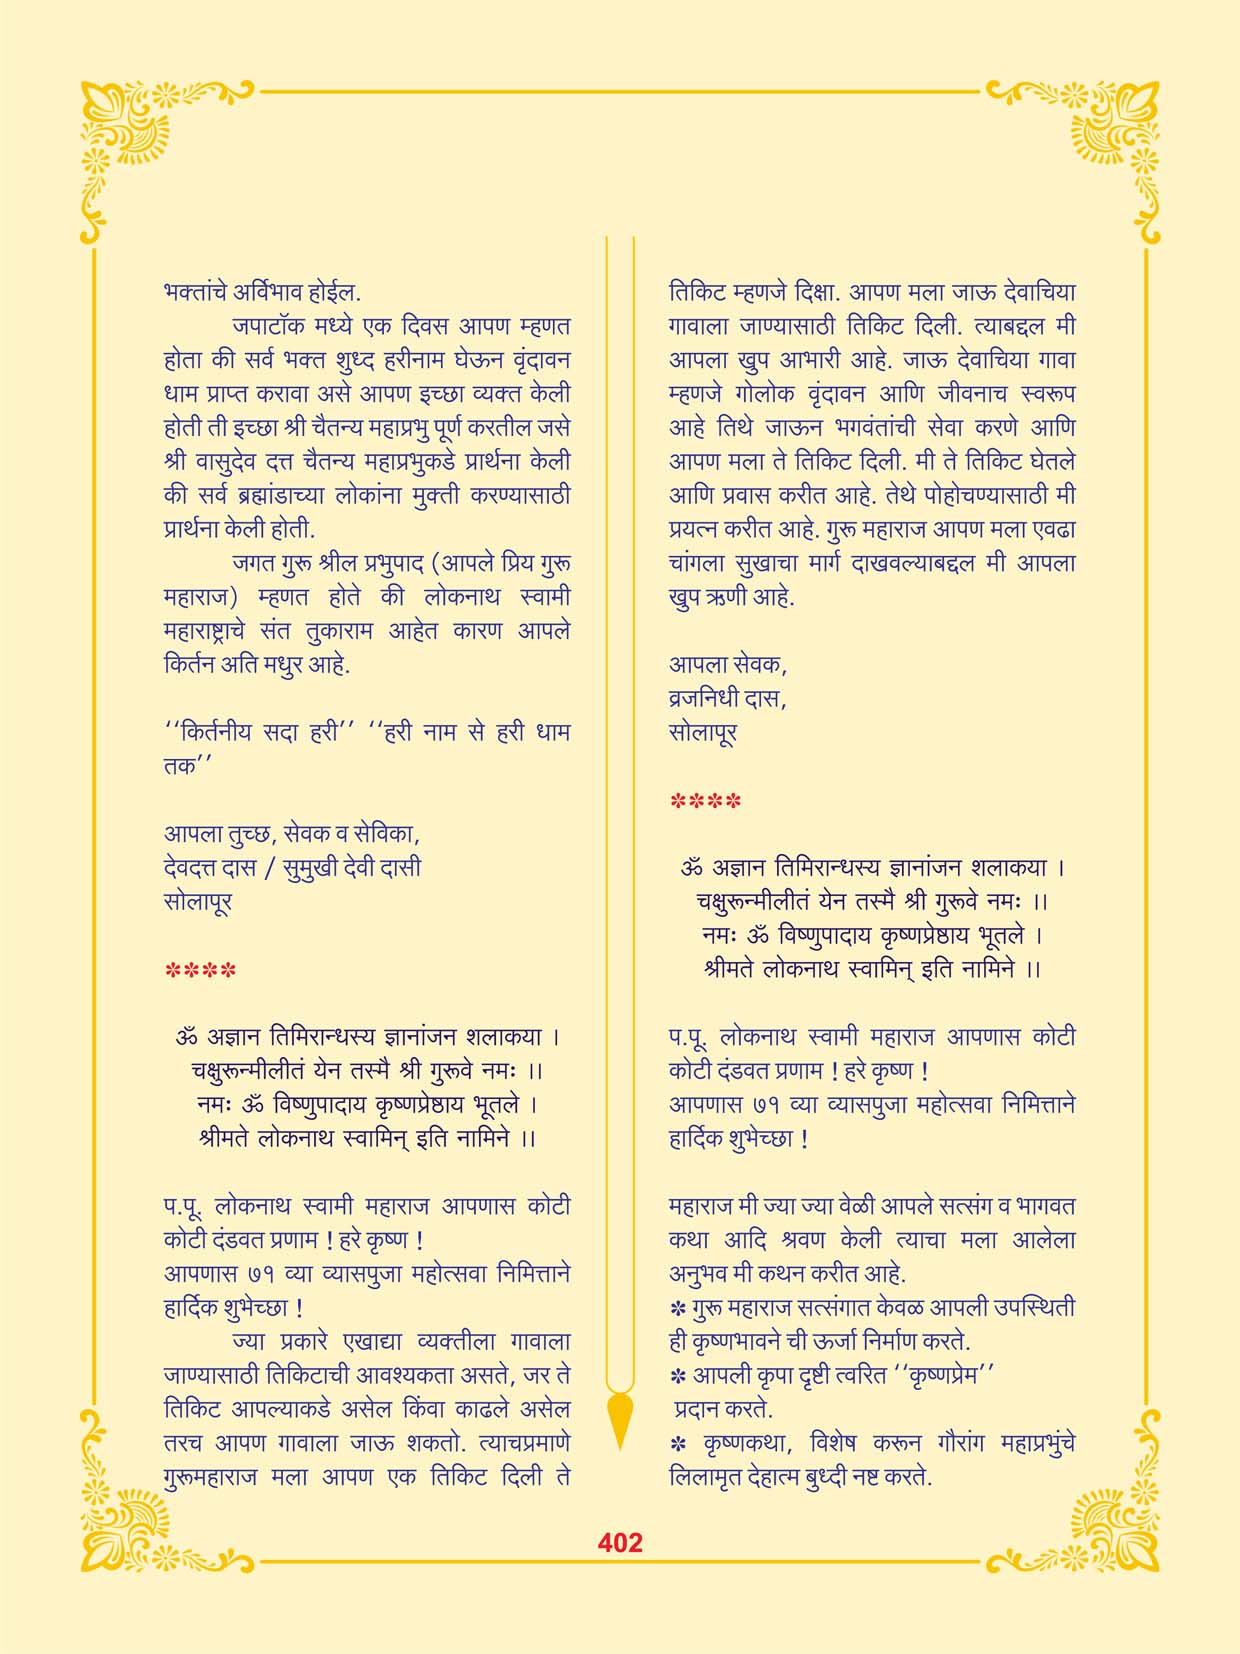 भक्तांचे अर्विभाव होईल.
जपाटॉक मध्ये एक दिवस आपण म्हणत
होता की सर्व भक्त शुध्द हरीनाम घेऊन वृंदावन
धाम प्राप्त करावा असे आपण इच्छा व्यक्त केली
होती ती इच्छा श्री चैतन्य महाप्रभु पूर्ण करतील जसे
श्री वासुदेव दत्त चैतन्य महाप्रभुकडे प्रार्थना केली
की सर्व ब्रह्मांडाच्या लोकांना मुक्ती करण्यासाठी
प्रार्थना केली होती.
जगत गुरू श्रील प्रभुपाद (आपले प्रिय गुरू
महाराज) म्हणत होते की लोकनाथ स्वामी
महाराष्ट्राचे संत तुकाराम आहेत कारण आपले
किर्तन अति मधुर आहे.
‘‘किर्तनीय सदा हरी’’ ‘‘हरी नाम से हरी धाम
तक’’
आपला तुच्छ, सेवक व सेविका,
देवदत्त दास / सुमुखी देवी दासी
सोलापूर
****
ॐ अज्ञान तिमिरान्धस्य ज्ञानांजन शलाकया ।
चक्षुरून्मीलीतं येन तस्मै श्री गुरूवे नमः ।।
नमः ॐ विष्णुपादाय कृष्णप्रेष्ठाय भूतले ।
श्रीमते लोकनाथ स्वामिन् इति नामिने ।।
प.पू. लोकनाथ स्वामी महाराज आपणास कोटी
कोटी दंडवत प्रणाम ! हरे कृष्ण !
आपणास ७१ व्या व्यासपुजा महोत्सवा निमित्ताने
हार्दिक शुभेच्छा !
ज्या प्रकारे एखाद्या व्यक्तीला गावाला
जाण्यासाठी तिकिटाची आवश्यकता असते, जर ते
तिकिट आपल्याकडे असेल किंवा काढले असेल
तरच आपण गावाला जाऊ शकतो. त्याचप्रमाणे
गुरूमहाराज मला आपण एक तिकिट दिली ते
तिकिट म्हणजे दिक्षा. आपण मला जाऊ देवाचिया
गावाला जाण्यासाठी तिकिट दिली. त्याबद्दल मी
आपला खुप आभारी आहे. जाऊ देवाचिया गावा
म्हणजे गोलोक वृंदावन आणि जीवनाच स्वरूप
आहे तिथे जाऊन भगवंतांची सेवा करणे आणि
आपण मला ते तिकिट दिली. मी ते तिकिट घेतले
आणि प्रवास करीत आहे. तेथे पोहोचण्यासाठी मी
प्रयत्न करीत आहे. गुरू महाराज आपण मला एवढा
चांगला सुखाचा मार्ग दाखवल्याबद्दल मी आपला
खुप ऋणी आहे.
आपला सेवक,
व्रजनिधी दास,
सोलापूर
****
ॐ अज्ञान तिमिरान्धस्य ज्ञानांजन शलाकया ।
चक्षुरून्मीलीतं येन तस्मै श्री गुरूवे नमः ।।
नमः ॐ विष्णुपादाय कृष्णप्रेष्ठाय भूतले ।
श्रीमते लोकनाथ स्वामिन् इति नामिने ।।
प.पू. लोकनाथ स्वामी महाराज आपणास कोटी
कोटी दंडवत प्रणाम ! हरे कृष्ण !
आपणास ७१ व्या व्यासपुजा महोत्सवा निमित्ताने
हार्दिक शुभेच्छा !
महाराज मी ज्या ज्या वेळी आपले सत्संग व भागवत
कथा आदि श्रवण केली त्याचा मला आलेला
अनुभव मी कथन करीत आहे.
* गुरू महाराज सत्संगात केवळ आपली उपस्थिती
ही कृष्णभावने ची ऊर्जा निर्माण करते.
* आपली कृपा दृष्टी त्वरित ‘‘कृष्णप्रेम’’
प्रदान करते.
* कृष्णकथा, विशेष करून गौरांग महाप्रभुंचे
लिलामृत देहात्म बुध्दी नष्ट करते.
402